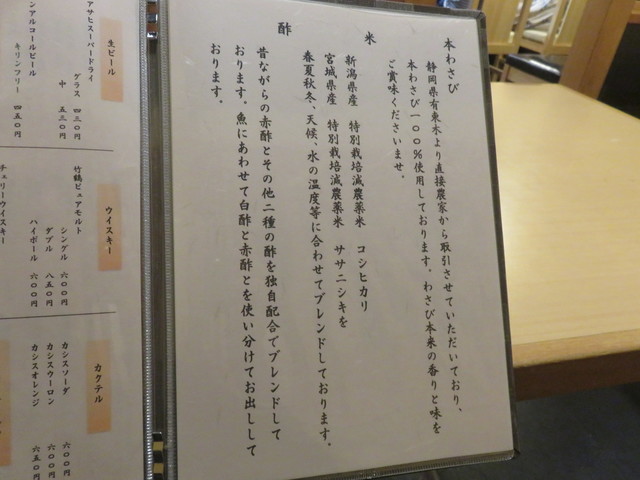 本わさび
静岡県有東木より直接農家から取引させていただいており、
本わさび一〇〇％使用しております。わさび本来の香りと味を
ご賞味くださいませ。
米
新潟県産 特別栽培減農薬米 コシヒカリ
宮城県産 特別栽培減農薬米 ササニシキを
春夏秋冬、天候、水の温度等に合わせてブレンドしております。
酢
昔ながらの赤酢とその他二種の酢を独自配合でブレンドして
おります。魚にあわせて白酢と赤酢とを使い分けてお出しして
おります。
生ビール
アサヒスーパードライ
グラス 四三〇円
中 五三〇円
ンアルコールビール
キリンフリー 四五〇円
ウイスキー
竹鶴ピュアモルト
シングル 六〇〇円
ダブル 八五〇円
ハイボール 六〇〇円
チェリーウイスキー
カクテル
カシスソーダ 六〇〇円
カシスウーロン 六〇〇円
カシスオレンジ 六五〇円